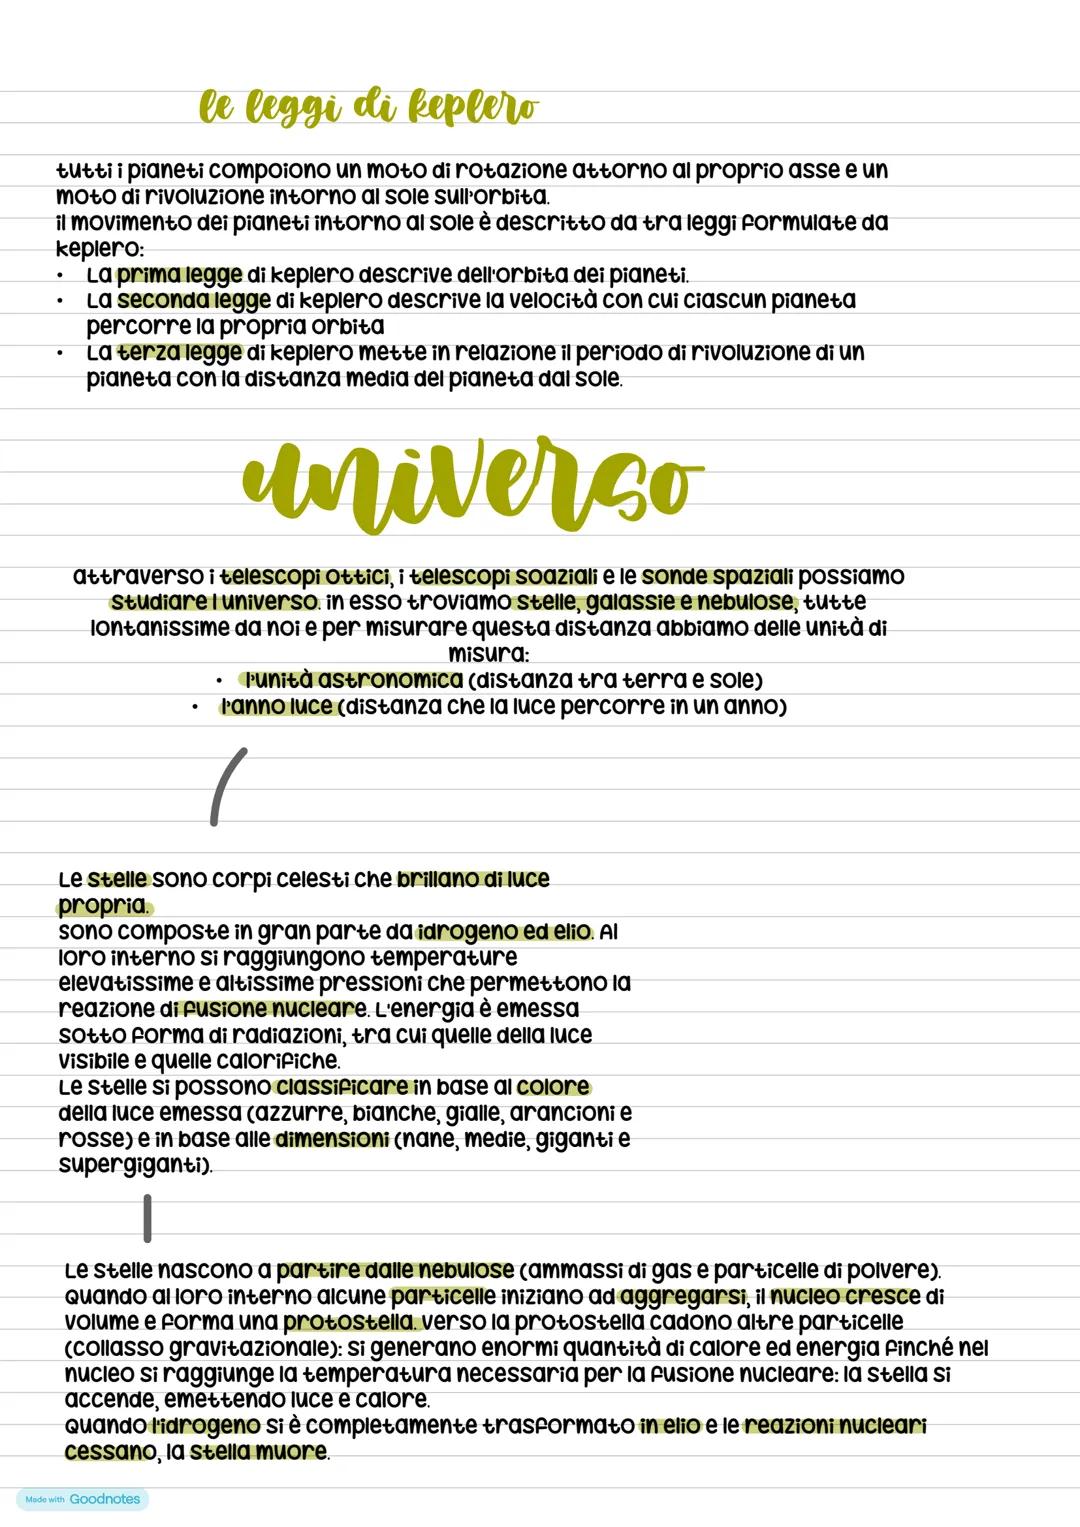 le leggi di keplero
tutti i pianeti compoiono un moto di rotazione attorno al proprio asse e un
moto di rivoluzione intorno al sole sull'orbita.
il movimento dei pianeti intorno al sole è descritto da tra leggi formulate da
keplero:
• La prima legge di keplero descrive dell'orbita dei pianeti.
• La seconda legge di keplero descrive la velocità con cui ciascun pianeta
percorre la propria orbita
• La terza legge di keplero mette in relazione il periodo di rivoluzione di un
pianeta con la distanza media del pianeta dal sole.
universo
attraverso i telescopi ottici, i telescopi soaziali e le sonde spaziali possiamo
studiare l universo. in esso troviamo stelle, galassie e nebulose, tutte
lontanissime da noi e per misurare questa distanza abbiamo delle unità di
misura:
• l'unità astronomica (distanza tra terra e sole)
• l'anno luce (distanza che la luce percorre in un anno)
Le stelle sono corpi celesti che brillano di luce
propria.
sono composte in gran parte da idrogeno ed elio. Al
loro interno si raggiungono temperature
elevatissime e altissime pressioni che permettono la
reazione di fusione nucleare. L'energia è emessa
sotto forma di radiazioni, tra cui quelle della luce
visibile e quelle calorifiche.
Le stelle si possono classificare in base al colore
della luce emessa (azzurre, bianche, gialle, arancioni e
rosse) e in base alle dimensioni (nane, medie, giganti e
supergiganti).
Le stelle nascono a partire dalle nebulose (ammassi di gas e particelle di polvere).
Quando al loro interno alcune particelle iniziano ad aggregarsi, il nucleo cresce di
volume e forma una protostella. verso la protostella cadono altre particelle
(collasso gravitazionale): si generano enormi quantità di calore ed energia finché nel
nucleo si raggiunge la temperatura necessaria per la fusione nucleare: la stella si
accende, emettendo luce e calore.
Quando l'idrogeno si è completamente trasformato in elio e le reazioni nucleari
cessano, la stella muore.
Made with Goodnotes